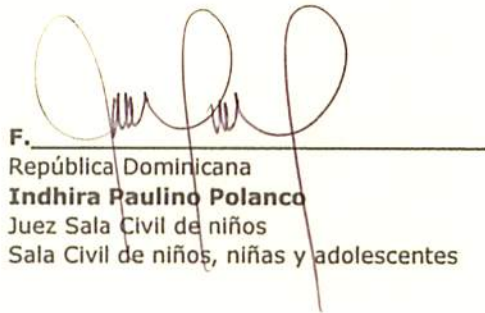 F.
República Dominicana
Indhira Paulino Polanco
Juez Sala Civil de niños
Sala Civil de niños, niñas y adolescentes